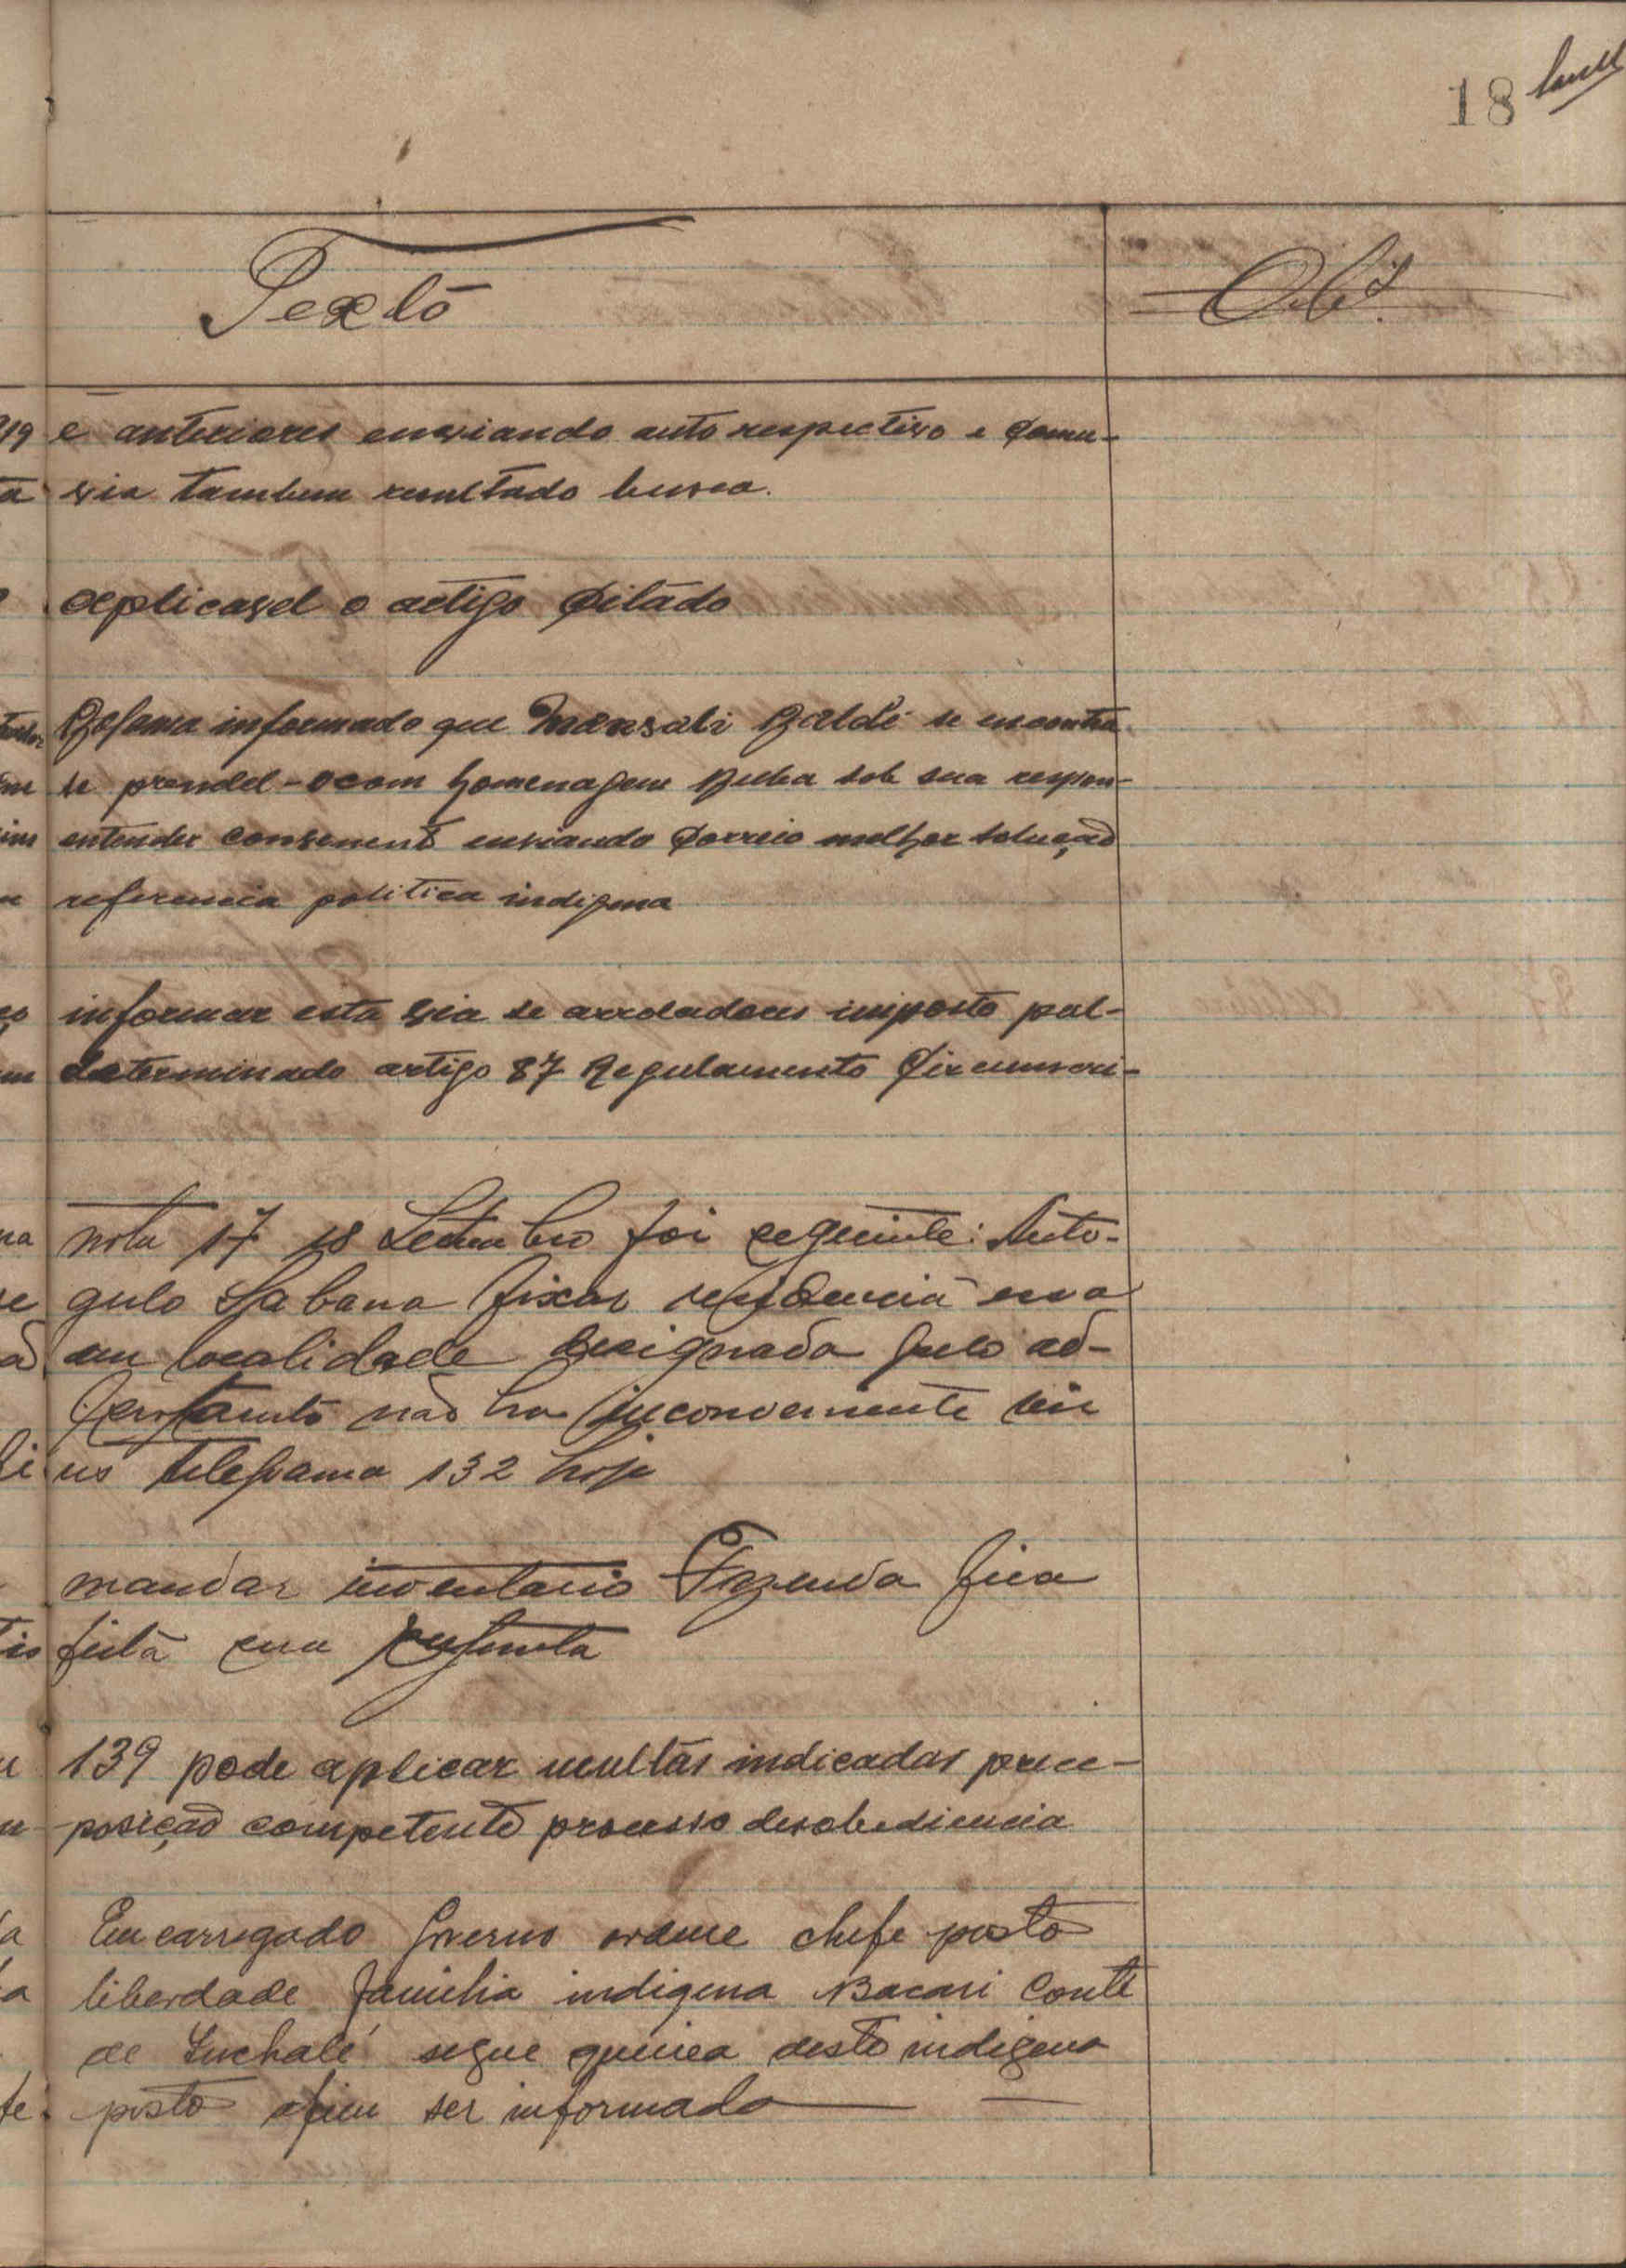 18
Texto
Obs.
919 e anteriores enviando auto respectivo e comu-
via tambem resultado busca.
aplicavel o artigo citado
Bafama informado que Mansali Baldé se encontra
se prendel-o com homenagem sob sua respon-
entender conveniente enviando correio melhor solução
referencia politica indigena
informar esta via se arroladores imposto pal-
determinado artigo 87 Regulamento Circunscri-
nota 17 18 Setembro foi seguinte: Auto-
gulo Sabana fixar residencia essa
em localidade designada pelo ad-
não ha inconveniente
telegrama 132 hoje
mandar inventario Fazenda fica
feita sua pergunta
139 pode aplicar multas indicadas
posição competente processo desobediencia
Encarregado Governo ordene chefe posto
liberdade familia indigena Bacari Conté
de segue deste indigena
posto afim ser informado